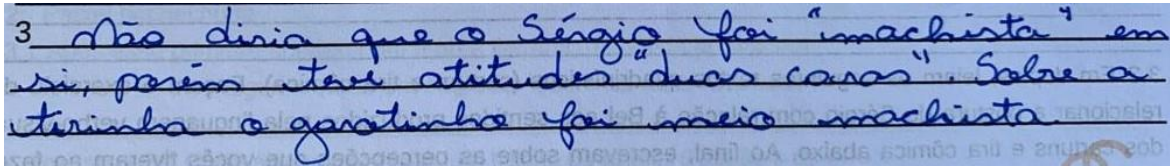 3 Não diria que o Sérgio foi "machista" em
si, porém teve atitudes "duas caras". Sobre a
tirinha o garotinho foi meio machista.